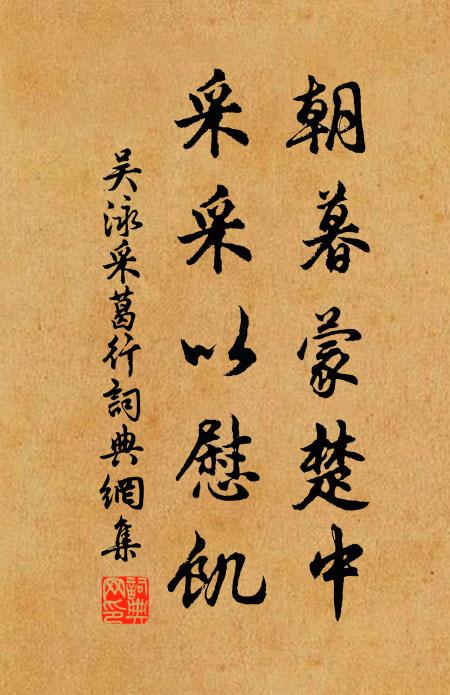 朝暮蒙楚中
采采以慰飢
吴泳采葛行詞典網集
詞典網印